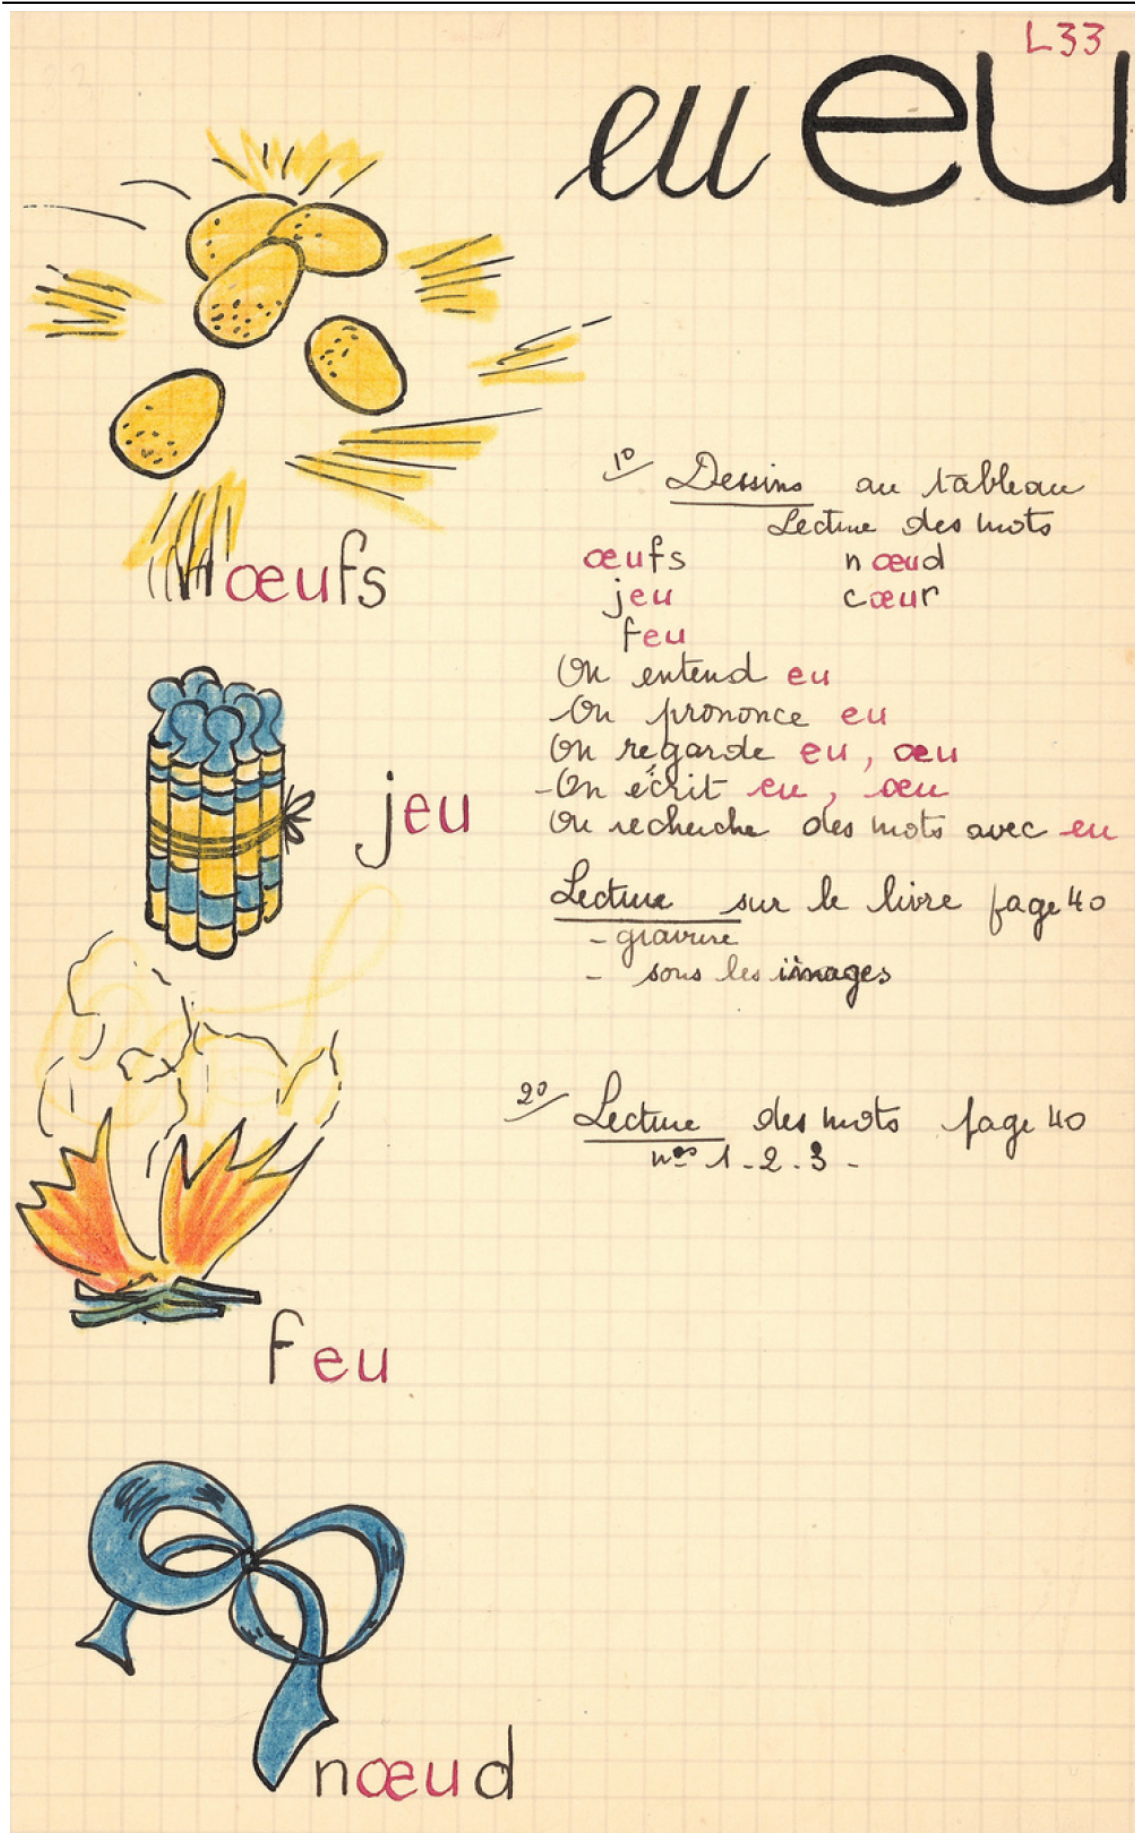 L33
eu eu
œufs
1º/ Dessins au tableau
Lecture des mots
œufs nœud
jeu cœur
feu
On entend eu
On prononce eu
On regarde eu, œu
- On écrit eu, œu
On recherche des mots avec eu
jeu
Lecture sur le livre page 40
- gravure
- sous les images
2º/ Lecture des mots page 40
nos 1 - 2 - 3 -
feu
nœud